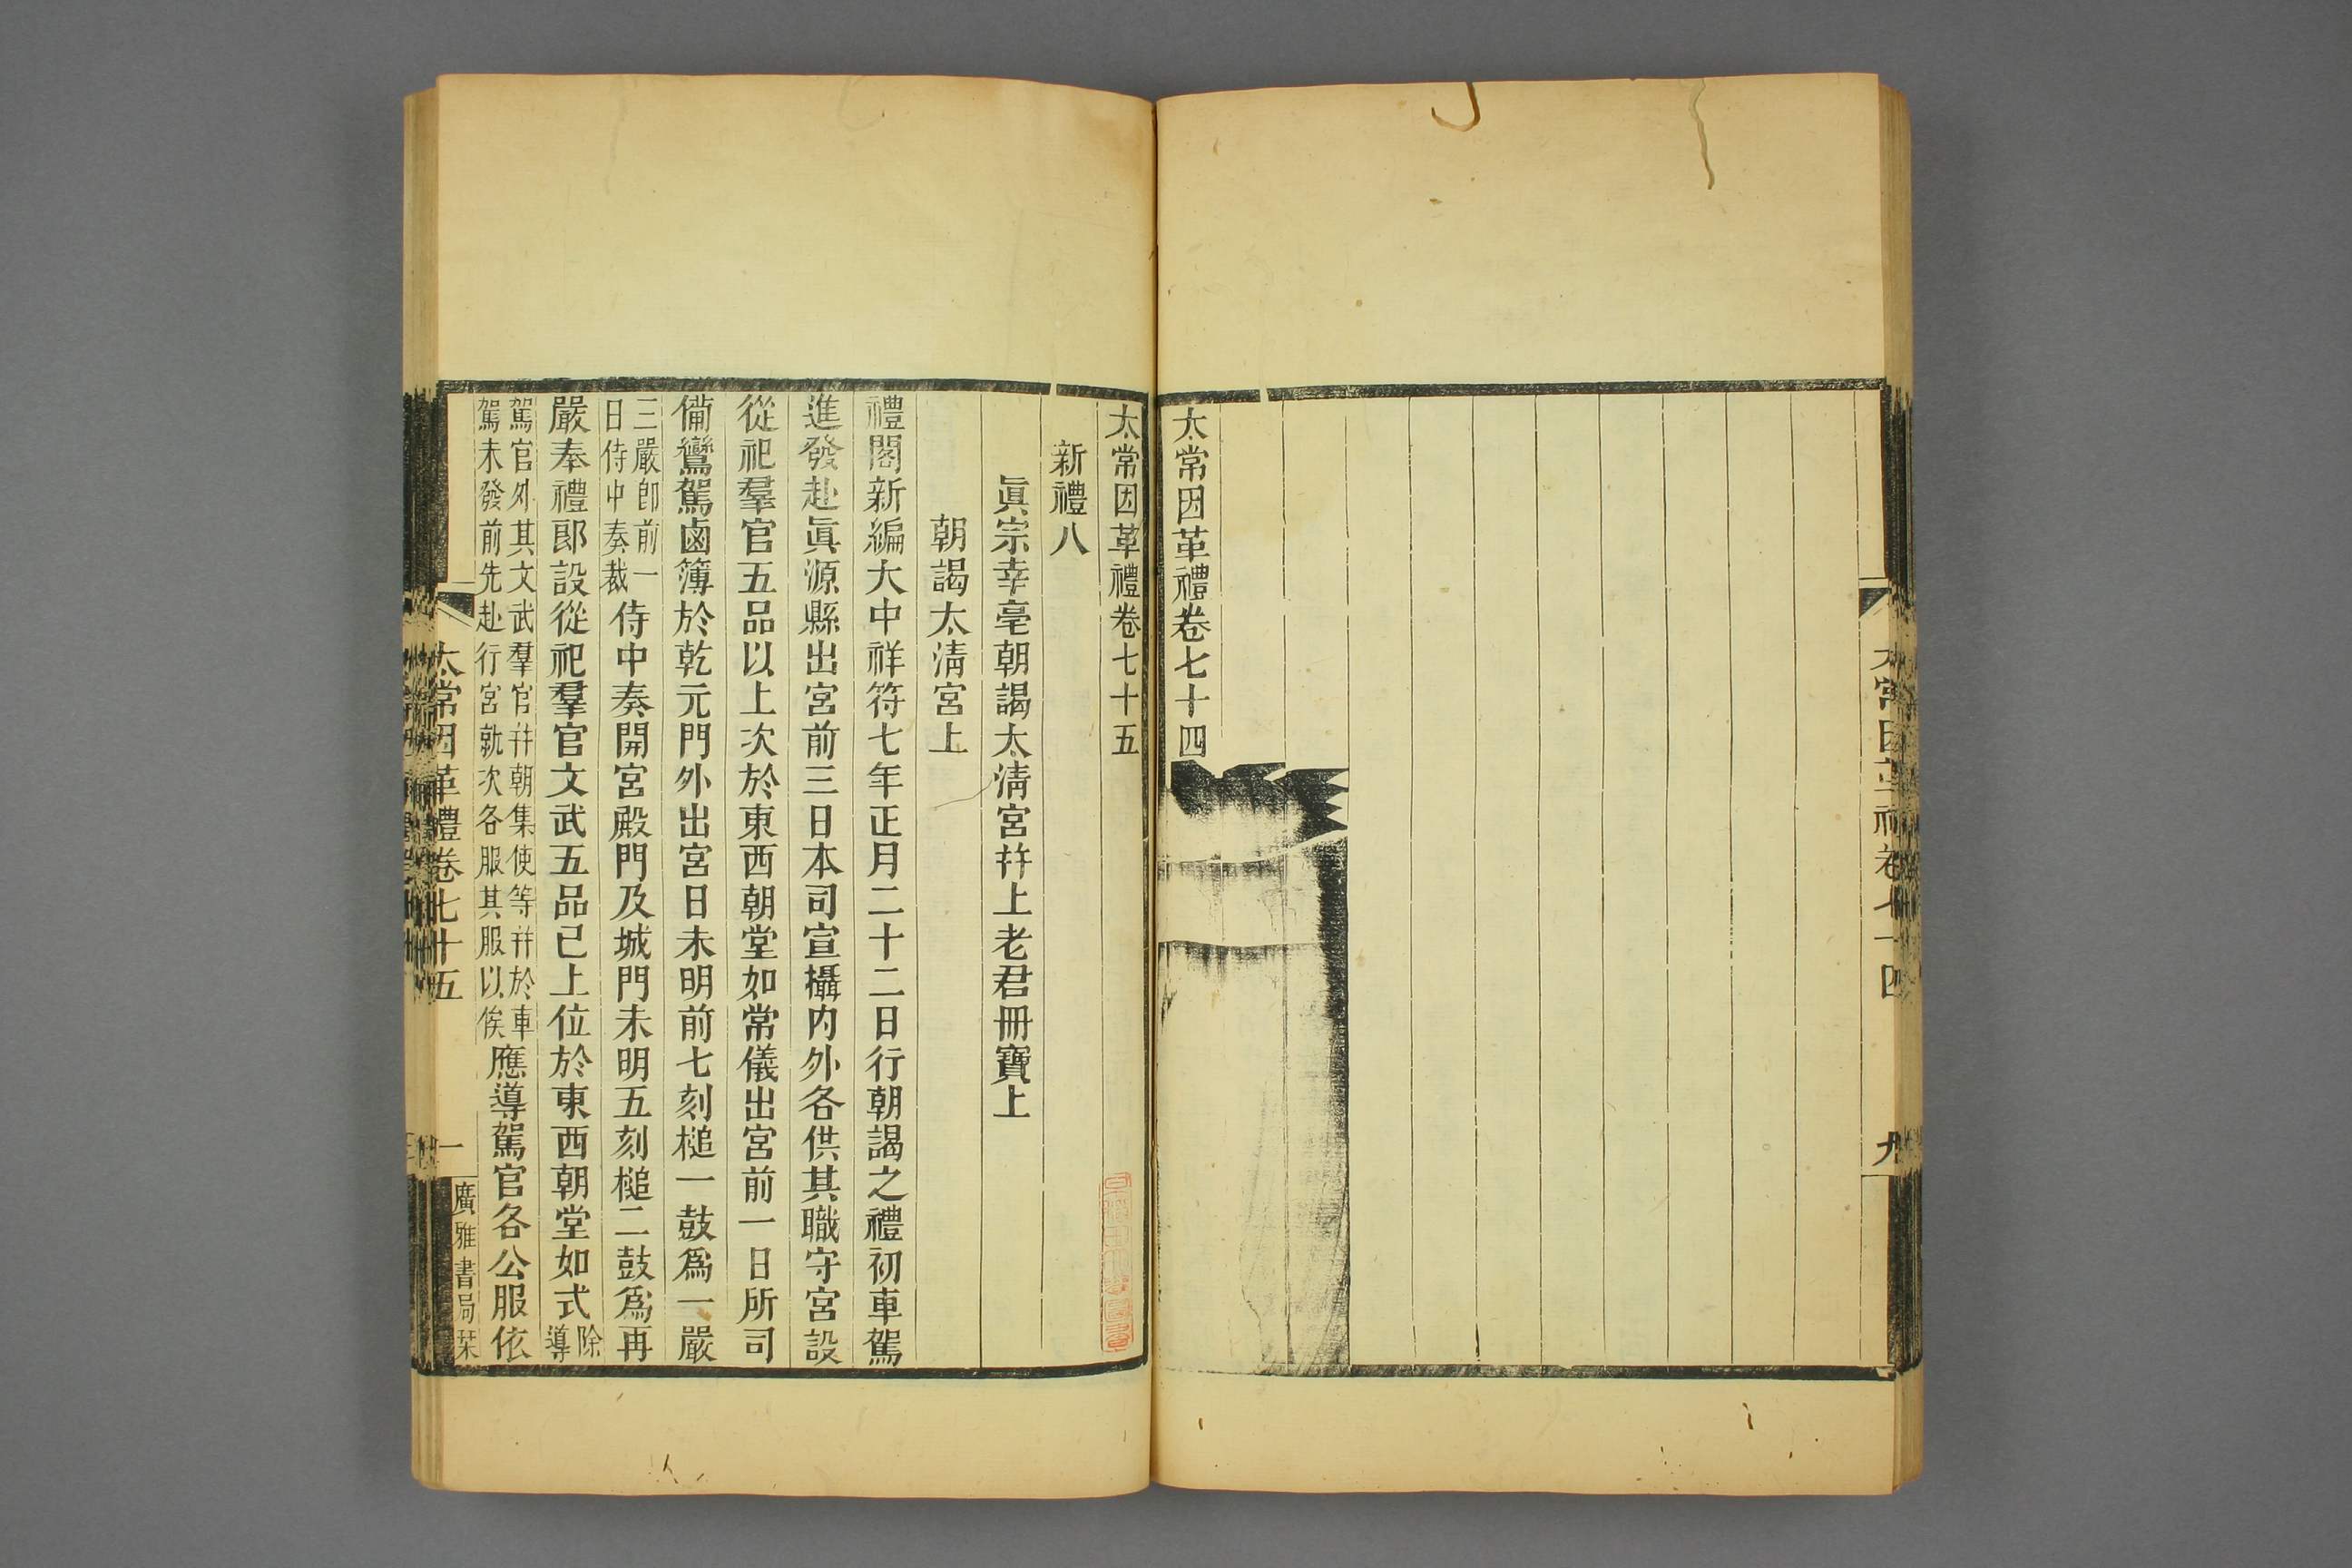 太常因革禮卷七十四
太常因革禮卷七十五
新禮八
眞宗幸亳朝謁太淸宮幷上老君冊寶上
朝謁太淸宮上
禮閣新編大中祥符七年正月二十二日行朝謁之禮初車駕
進發赴眞源縣出宮前三日本司宣攝内外各供其職守宮設
從祀羣官五品以上次於東西朝堂如常儀出宮前一日所司
備鸞駕鹵簿於乾元門外出宮日未明前七刻槌一鼓爲一嚴
三嚴卽前一
日侍中奏裁
侍中奏開宮殿門及城門未明五刻槌二鼓爲再
嚴奉禮郎設從祀羣官文武五品已上位於東西朝堂如式
除
導
駕官外其文武羣官幷朝集使等幷於車
駕未發前先赴行宮執次各服其服以俟
應導駕官各公服依
太常因革禮卷七十五
一
廣雅書局栞
九